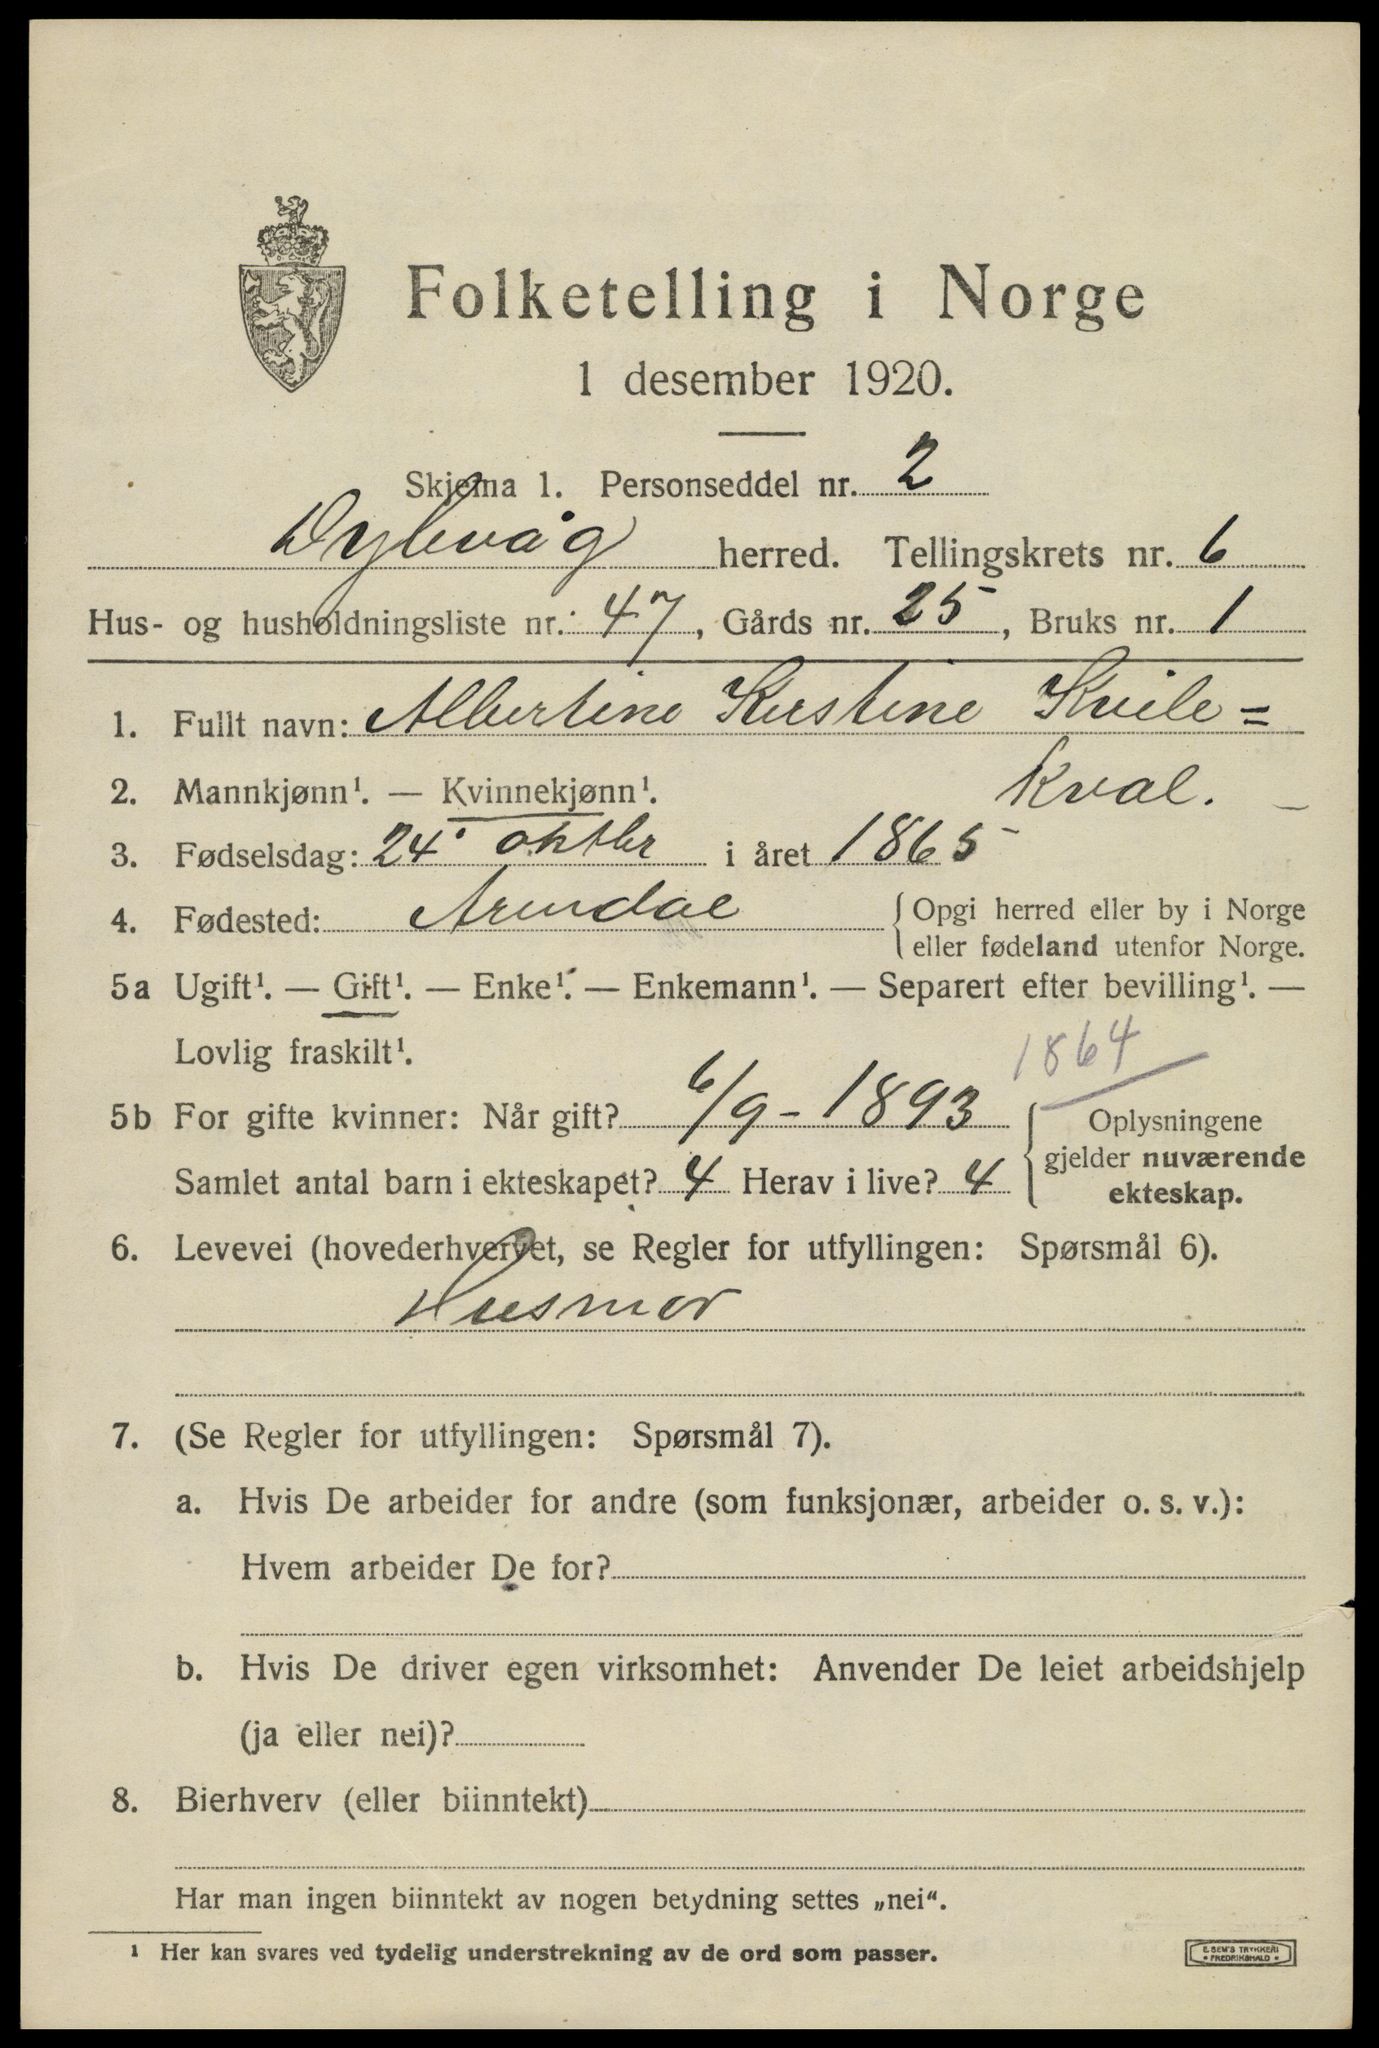 Folketelling i Norge
1 desember 1920.
Skjema 1. Personseddel nr. 2
Dybvåg herred. Tellingskrets nr. 6
Hus- og husholdningsliste nr. 47, Gårds nr. 25, Bruks nr. 1
1. Fullt navn: Albertine Kirstine Kvile=
kval.
2. Mannkjønn¹. — Kvinnekjønn¹.
3. Fødselsdag: 24' oktbr i året 1865
4. Fødested: Arendal { Opgi herred eller by i Norge
eller fødeland utenfor Norge.
5a Ugift¹. — Gift¹. — Enke¹. — Enkemann¹. — Separert efter bevilling¹. —
Lovlig fraskilt¹.
1864
5b For gifte kvinner: Når gift? 6/9 - 1893
Samlet antal barn i ekteskapet? 4 Herav i live? 4
Oplysningene
gjelder nuværende
ekteskap.
6. Levevei (hovederhvervet, se Regler for utfyllingen: Spørsmål 6).
Husmor
7. (Se Regler for utfyllingen: Spørsmål 7).
a. Hvis De arbeider for andre (som funksjonær, arbeider o. s. v.):
Hvem arbeider De for?
b. Hvis De driver egen virksomhet: Anvender De leiet arbeidshjelp
(ja eller nei)?
8. Bierhverv (eller biinntekt)
Har man ingen biinntekt av nogen betydning settes „nei“.
¹ Her kan svares ved tydelig understrekning av de ord som passer.
E. SEM'S TRYKKERI
• FREDRIKSHALD •